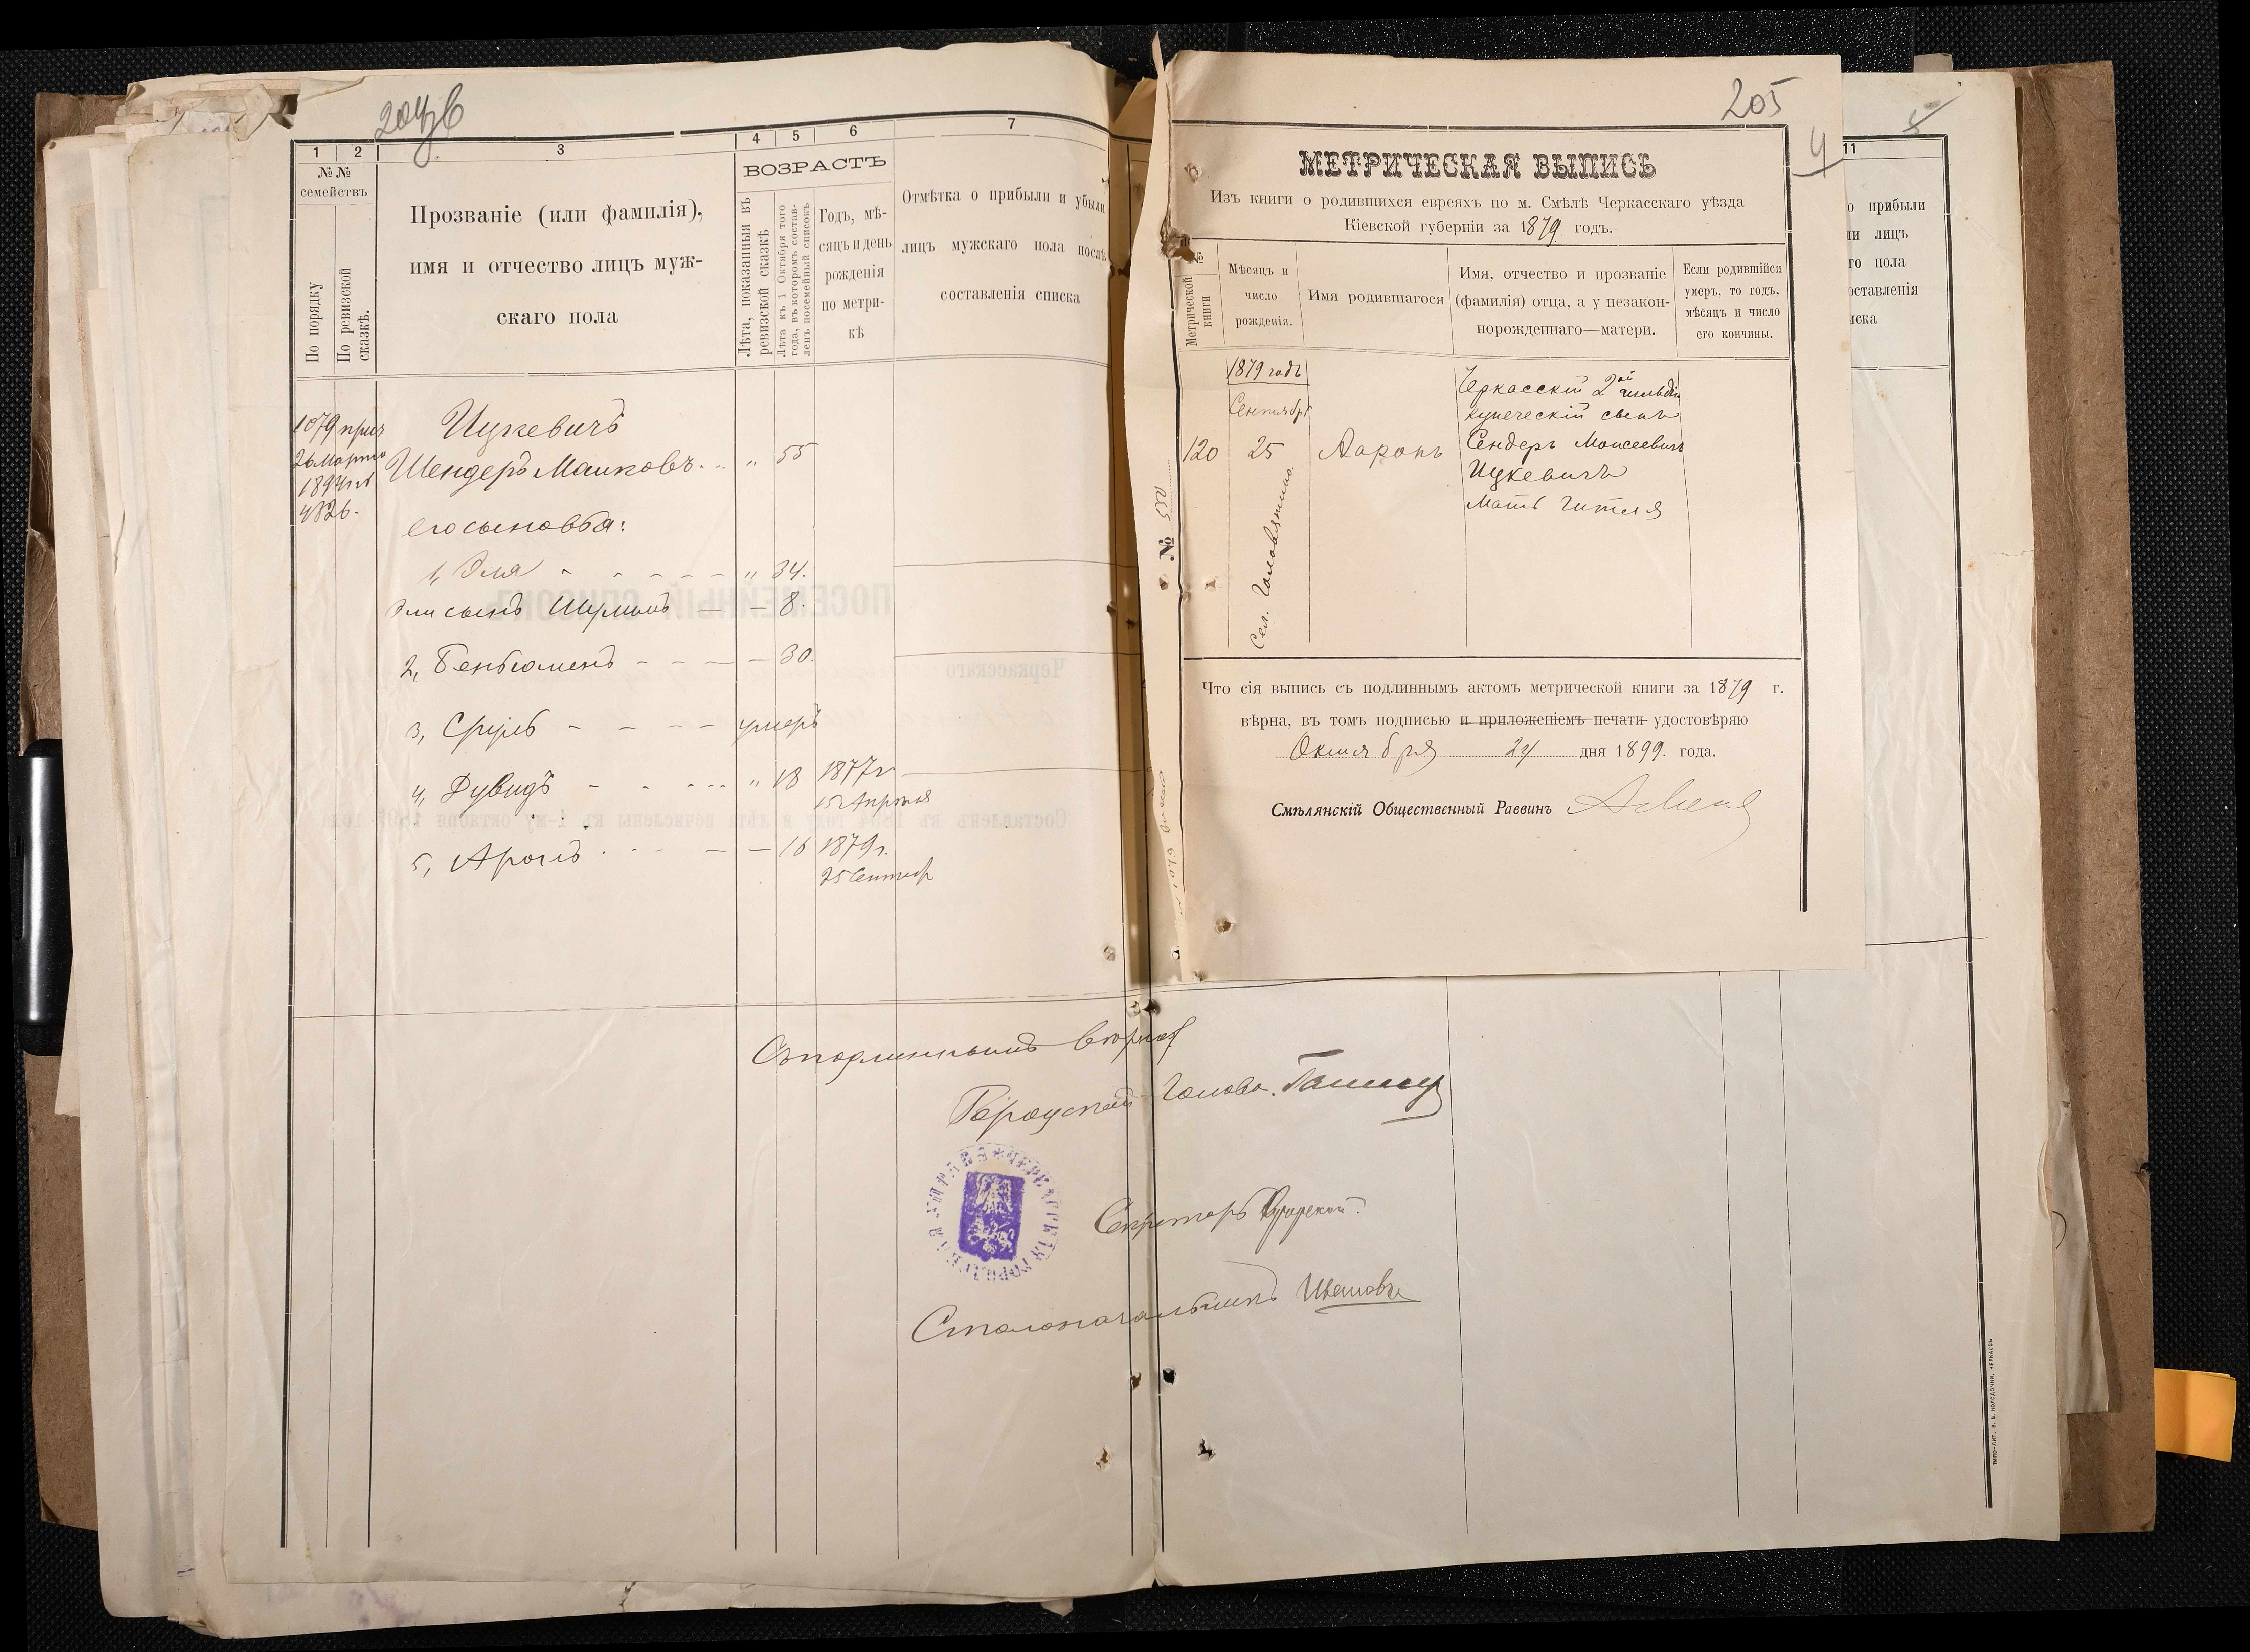 204 об
1
2
3
4
5
6
7
№№
семействъ
По порядку
По ревизской
сказкѣ.
Прозваніе (или фамилія),
имя и отчество лицъ муж-
скаго пола
ВОЗРАСТЪ
Лѣта, показанныя въ
ревизской сказкѣ
Лѣта къ 1 Октября того
года, въ которомъ состав-
ленъ посемейный списокъ
Годъ, мѣ-
сяцъ и день
рожденія
по метри-
кѣ
Отмѣтка о прибыли и убыли
лицъ мужскаго пола послѣ
составленія списка
1079 прич
26 Марта
1894 г. №
4826.
Ицкевичъ
Шендеръ Машковъ. „ 55
его сыновья:
1, Эля „ 34.
Эли сынъ Шулимъ — — 8.
2, Беньюменъ — 30.
3, Сруль умеръ
4, Дувидъ „ 18 1877 г
15 Апрѣля
5, Аронъ — 16 1879 г.
25 Сентяб
Съ подлиннымъ вѣрно:
Городской Голова
Секретарь
Столоначальникъ Ивановъ
205
4
МЕТРИЧЕСКАЯ ВЫПИСЬ
Изъ книги о родившихся евреяхъ по м. Смѣлѣ Черкасскаго уѣзда
Кіевской губерніи за 1879 годъ.
№
Метрической
книги
Мѣсяцъ и
число
рожденія.
Имя родившагося
Имя, отчество и прозваніе
(фамилія) отца, а у незакон-
норожденнаго—матери.
Если родившійся
умеръ, то годъ,
мѣсяцъ и число
его кончины.
1879 годъ
Сентябрь
120 25 Ааронъ
Сел. Головятино
Черкасскій 2ой гильдіи
купеческій сынъ
Сендеръ Моисеевичъ
Ицкевичъ
Мать Гитля
№
Что сія выпись съ подлиннымъ актомъ метрической книги за 1879 г.
вѣрна, въ томъ подписью и приложеніемъ печати удостовѣряю
Октября 24 дня 1899 года.
Смѣлянскій Общественный Раввинъ
5
11
о прибыли
ли лицъ
го пола
оставленія
иска
ТИПО-ЛИТ. В. В. КОЛОДОЧКИ, ЧЕРКАССЫ